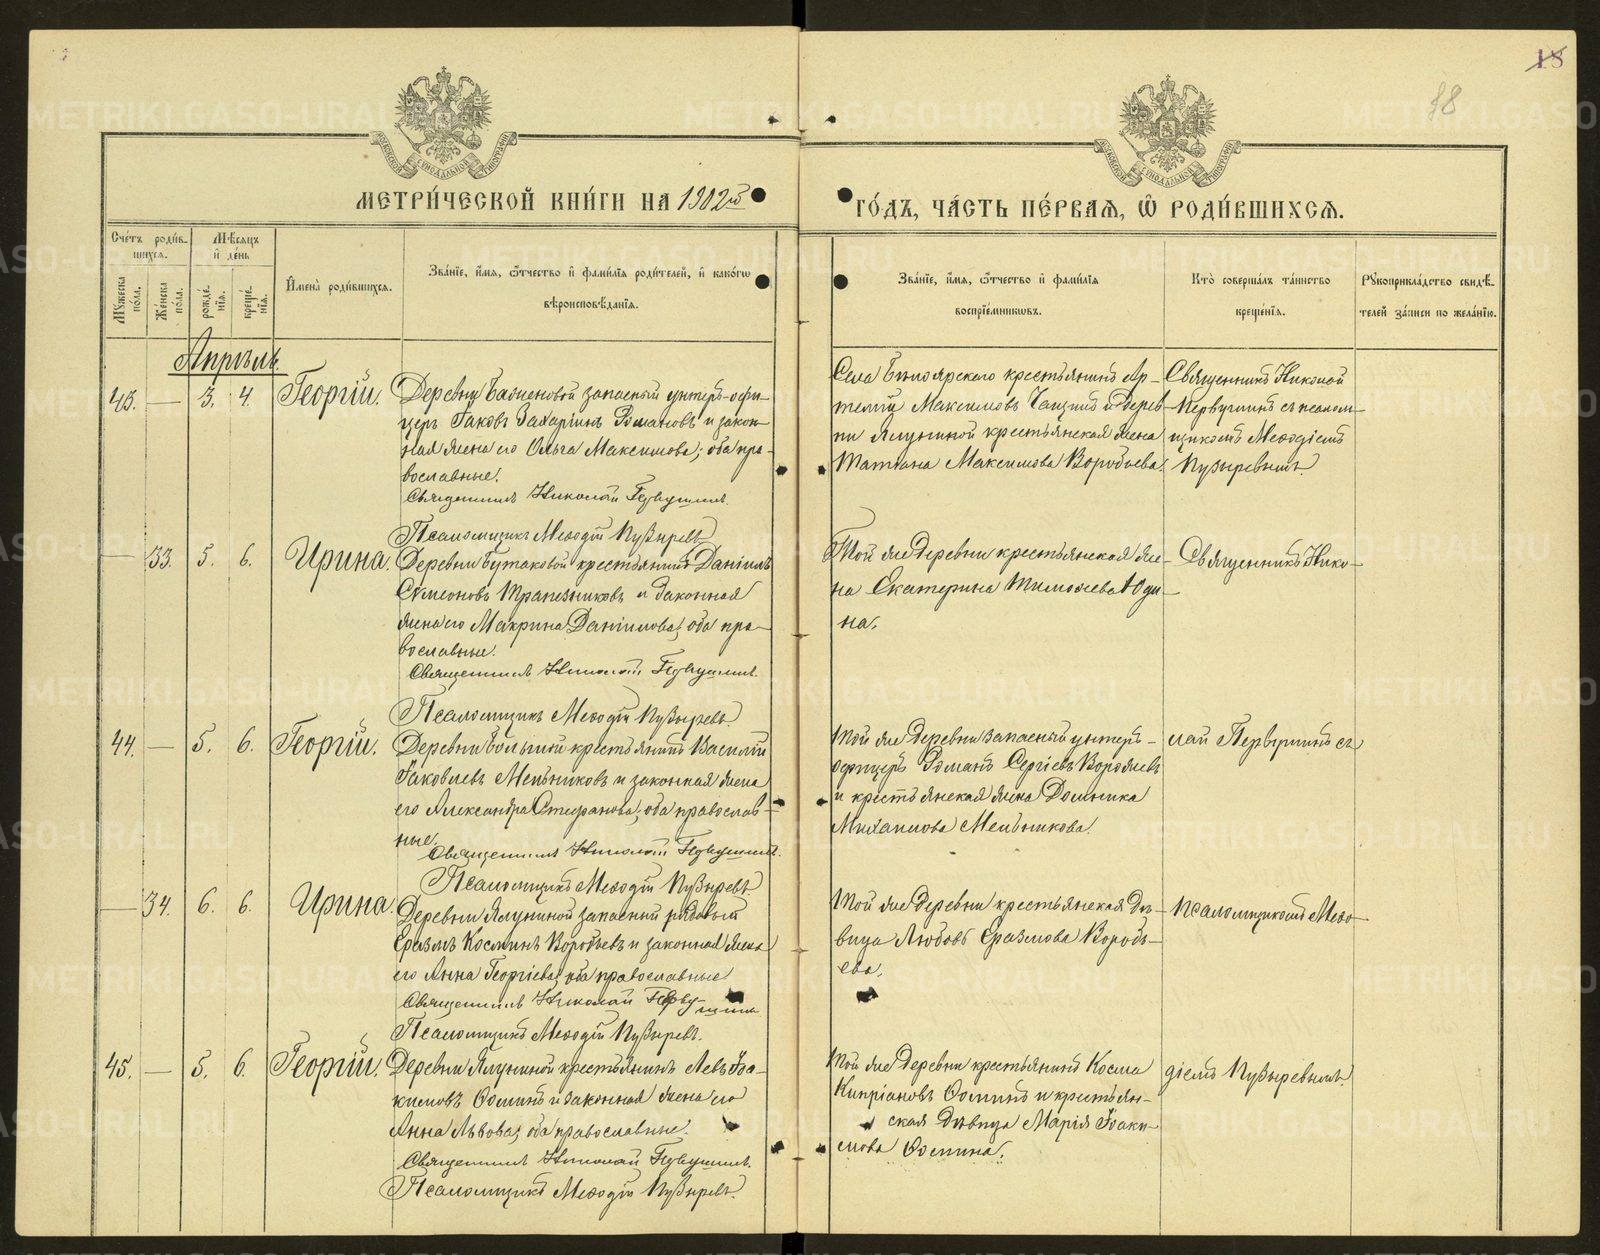 18
18
МЕТРИ́ЧЕСКОЙ КНИ́ГИ НА 1902й
ГО́ДЪ, ЧА́СТЬ ПЕ́РВАЯ, Ѽ РОДИ́ВШИХСЯ.
Сче́тъ роди́в-
шихся.
Му́жеска по́ла.
Же́нска по́ла.
Мѣ́сяцъ
и́ де́нь
рожде́-
нія.
креще́-
нія.
И҆мена̀ роди́вшихся.
Зва́ніе, и҆́мя, ѻ҆́тчество и҆ фами́лія роди́телей, и҆ како́гѡ
вѣроисповѣ́данія.
Зва́ніе, и҆́мя, ѻ҆́тчество и҆ фами́лія
воспріе́мникѡвъ.
Кто̀ соверша́лъ та́инство
креще́нія.
Рꙋкоприкла́дство свидѣ́-
телей за́писи по жела́нію.
Апрѣль.
43. — 3. 4. Георгій.
Деревни Баженовой запасный унтеръ-офи-
церъ Іаковъ Захаріинъ Романовъ и закон-
ная жена его Ольга Максимова; оба пра-
вославные.
Священникъ Николай Первушинъ
Псаломщикъ Меѳодій Пузыревъ
Села Бѣлоярскаго крестьянинъ Ар-
темій Максимовъ и дерев-
ни Ялуниной крестьянская жена
Татіана Максимова Воробьева.
Священникъ Николай
Первушинъ съ псалом-
щикомъ Меѳодіемъ
Пузыревымъ.
— 33. 5. 6. Ирина.
Деревни Бутаковой крестьянинъ Даніилъ
Сѵмеоновъ Трапезниковъ и законная
жена его Макрина Даніилова; оба пра-
вославные.
Священникъ Николай Первушинъ.
Псаломщикъ Меѳодій Пузыревъ.
Той же деревни крестьянская же-
на Екатерина Тимоѳеева Юди-
на.
Священникъ Нико-
44. — 5. 6. Георгій.
Деревни Большой крестьянинъ Василій
Іаковлевъ Мельниковъ и законная жена
его Александра Стефанова; оба православ-
ные.
Священникъ Николай Первушинъ.
Псаломщикъ Меѳодій Пузыревъ
Той же деревни запасный унтеръ-
офицеръ Романъ Сергіевъ
и крестьянская жена Домника
Михаилова Мельникова.
лай Первушинъ съ
— 34. 6. 6. Ирина.
Деревни Ялуниной запасный рядовый
Еразмъ Косминъ Воробьевъ и законная жена
его Анна Георгіева; оба православные
Священникъ Николай Перву-
шинъ
Псаломщикъ Меѳодій Пузыревъ.
Той же деревни крестьянская дѣ-
вица Любовь Еразмова Воробь-
ева.
псаломщикомъ Меѳо-
45. — 5. 6. Георгій.
Деревни Ялуниной крестьянинъ Левъ Іоа-
кимовъ Ѳоминъ и законная жена его
Анна Львова; оба православные.
Священникъ Николай Первушинъ.
Псаломщикъ Меѳодій Пузыревъ.
Той же деревни крестьянинъ Косма
Кипріановъ Ѳоминъ и крестьян-
ская дѣвица Марія Іоаки-
мова Ѳомина.
діемъ Пузыревымъ.